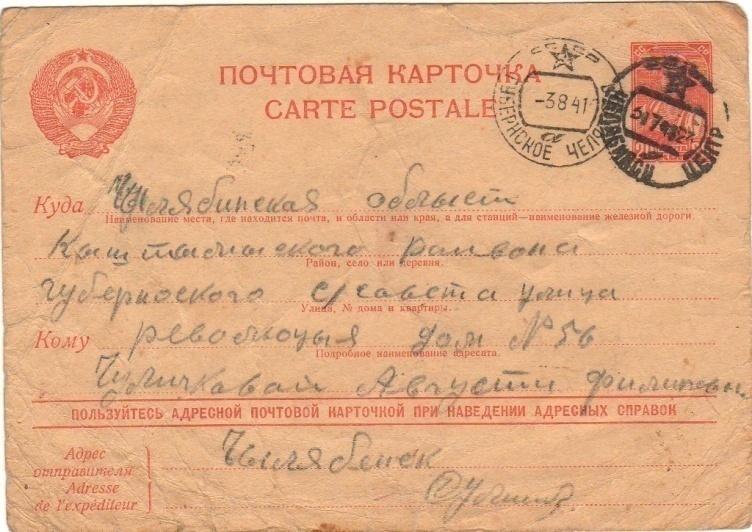 ПОЧТОВАЯ КАРТОЧКА
CARTE POSTALE
-3 8 41
ГУБЕРНСКОЕ ЧЕЛЯБ
ЧЕЛЯБИНСК ЦЕНТР
Куда Чилябинская область
Наименование места, где находится почта, и области или края, а для станций—наименование железной дороги
раивона
Район, село или деревня.
губернского с/савета улица
Улица, № дома и квартиры.
Кому революцыя дом № 56
Подробное наименование адресата.
Августи
ПОЛЬЗУЙТЕСЬ АДРЕСНОЙ ПОЧТОВОЙ КАРТОЧКОЙ ПРИ НАВЕДЕНИИ АДРЕСНЫХ СПРАВОК
Адрес
отправителя
Adresse
de l'expéditeur
Чилябенск